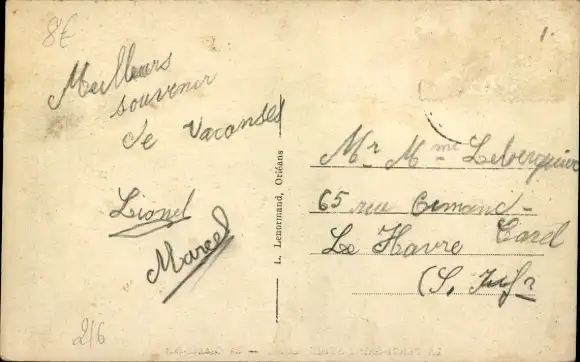 8€
1.
Meilleurs
souvenir
de vacanses
Lionel
Marcel
2/6
L. Lenormand, Orléans
Mr Mme
65 rue Armand-
Carel
Le Havre
(S. Infre